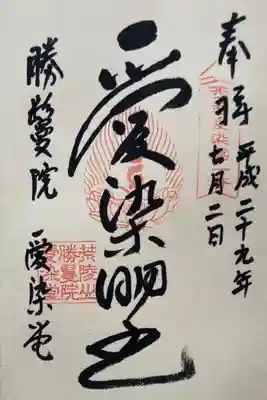 奉拝 平成二十九年
七月二日
愛染明王
勝鬘院 愛染堂
荒陵山
勝鬘院
愛染堂